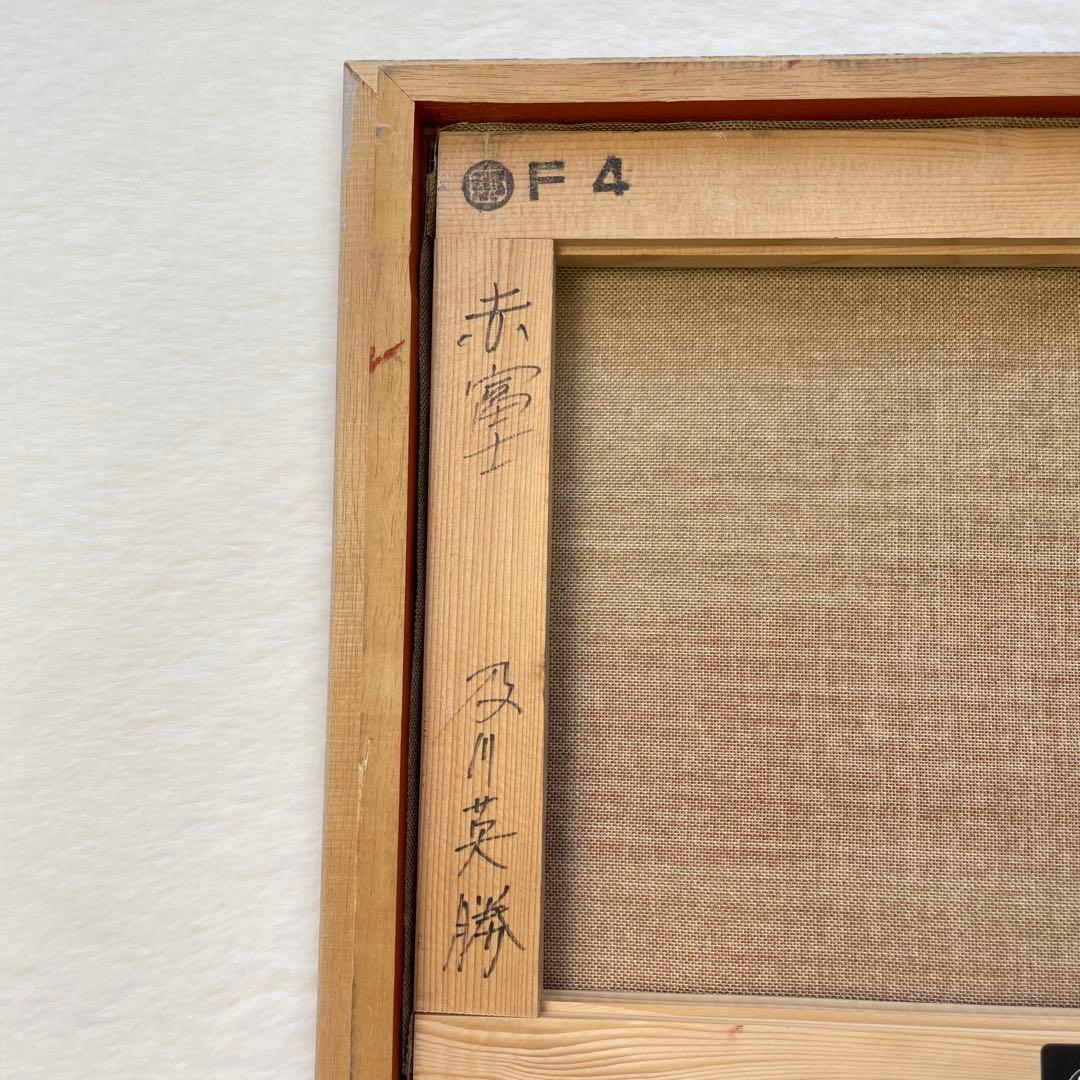 F 4
赤富士
及川英勝